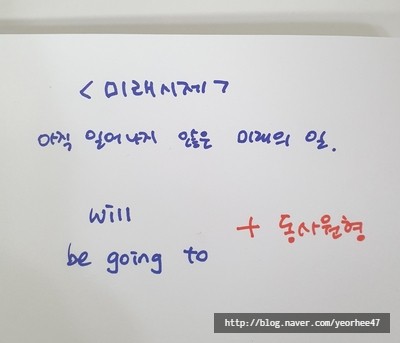 <미래시제>
아직 일어나지 않은 미래의 일.
will
+ 동사원형
be going to
http://blog.naver.com/yeorhee47